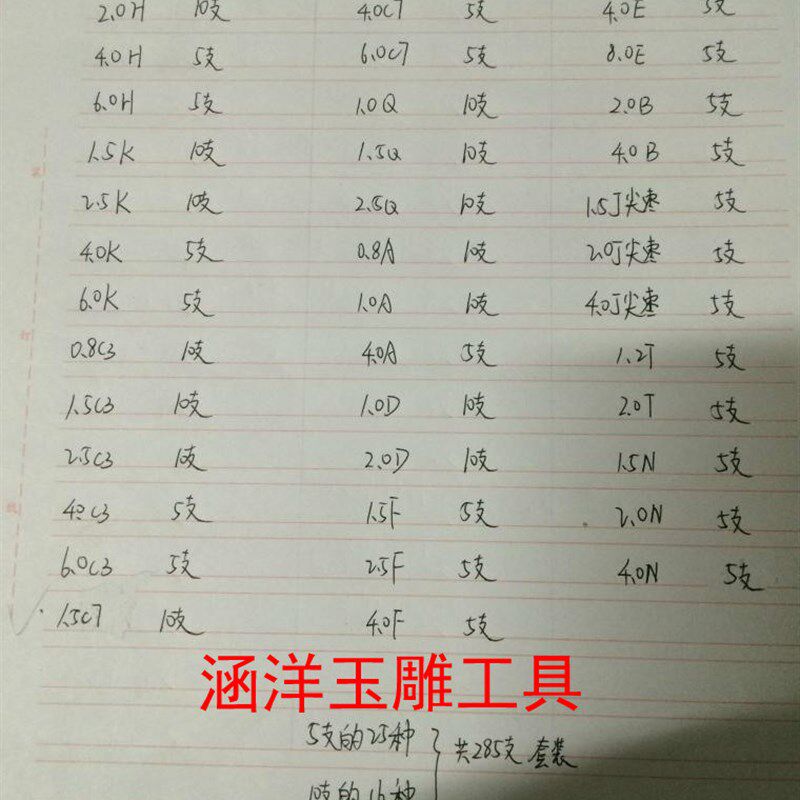 2.0H 10支 4.0C7 5支 4.0E 5支
4.0H 5支 6.0C7 5支 8.0E 5支
6.0H 5支 1.0Q 10支 2.0B 5支
1.5K 10支 1.5Q 10支 4.0B 5支
2.5K 10支 2.5Q 10支 1.5J尖枣 5支
4.0K 5支 0.8A 10支 2.0J尖枣 5支
6.0K 5支 1.0A 10支 4.0J尖枣 5支
0.8C3 10支 4.0A 5支 1.2T 5支
1.5C3 10支 1.0D 10支 2.0T 5支
2.5C3 10支 2.0D 10支 1.5N 5支
4.0C3 5支 1.5F 5支 2.0N 5支
6.0C3 5支 2.5F 5支 4.0N 5支
1.5C7 10支 4.0F 5支
涵洋玉雕工具
5支的25种
共285支 套装
10支的16种